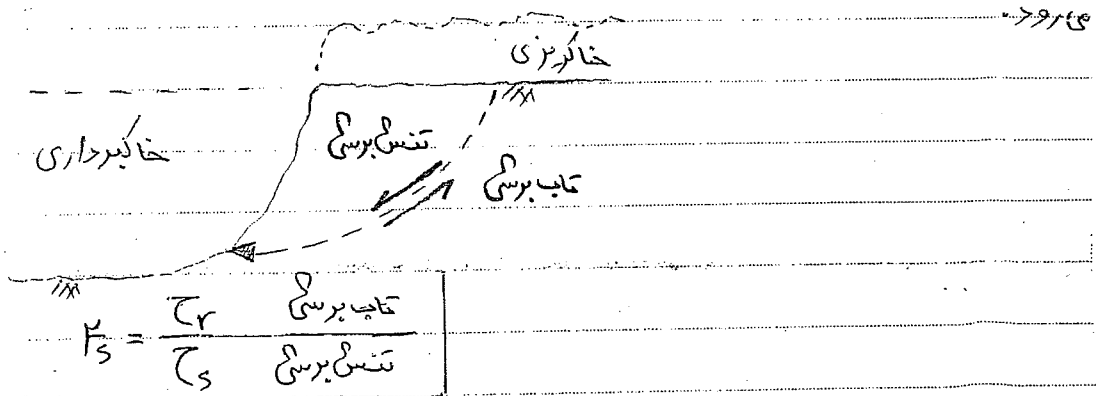 می‌رود.
خاکریزی
خاکبرداری
تنش برشی
تاب برشی
F_s = τ_r / τ_s
تاب برشی
تنش برشی